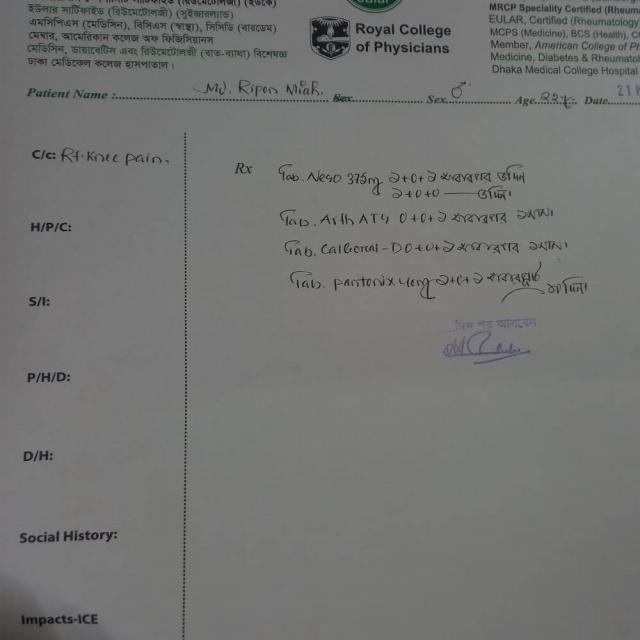 ইউলার সার্টিফাইড (রিউমেটোলজি) (সুইজারল্যান্ড)
এমসিপিএস (মেডিসিন), বিসিএস (স্বাস্থ্য), সিসিডি (বারডেম)
মেম্বার, আমেরিকান কলেজ অফ ফিজিসিয়ানস
মেডিসিন, ডায়াবেটিস এবং রিউমেটোলজী (বাত-ব্যাথা) বিশেষজ্ঞ
ঢাকা মেডিকেল কলেজ হাসপাতাল।
Royal College
of Physicians
MRCP Speciality Certified (Rheuma
EULAR, Certified (Rheumatology
MCPS (Medicine), BCS (Health), C
Member, American College of Ph
Medicine, Diabetes & Rheumatol
Dhaka Medical College Hospital
Patient Name : Md. Ripon Miah. Sex Sex. ♂ Age. ২২y. Date. 21
C/c: Rt. Knee pain.
Rx
Tab. Neso 375mg ১+০+১ খাবারের
১+০+০
H/P/C:
Tab. Arth A TS 0+0+১ খাবারের ১মাস।
Tab. Calboral-D 0+0+১ খাবারের ১মাস।
Tab. Pantonix 40mg ১+০+১
S/I:
দিন পর আসবেন
P/H/D:
D/H:
Social History:
Impacts-ICE